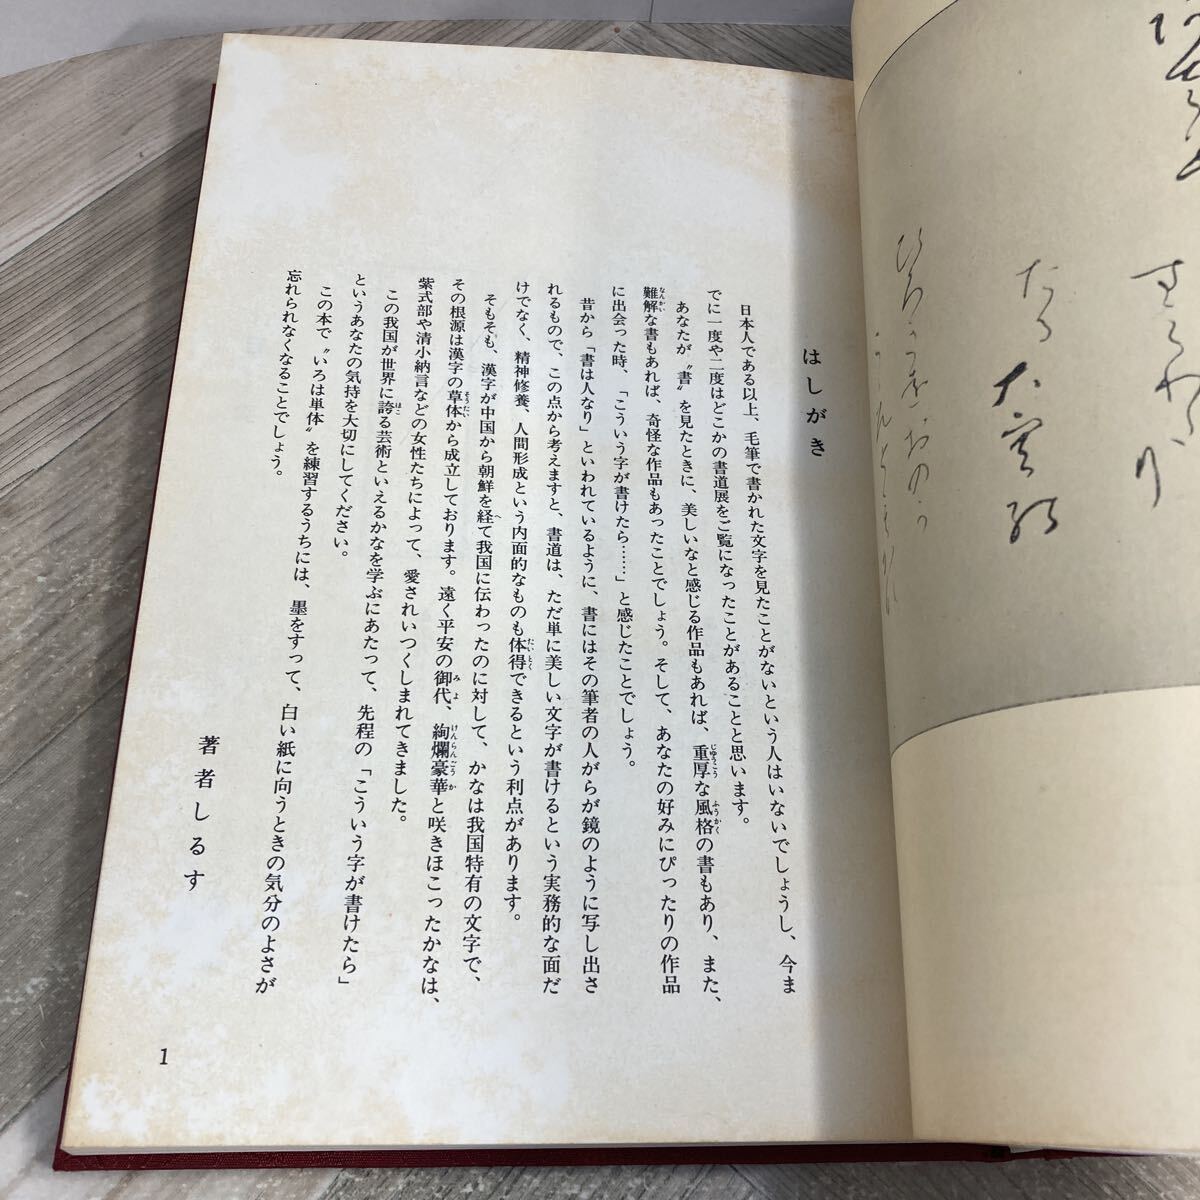 はしがき
日本人である以上、毛筆で書かれた文字を見たことがないという人はいないでしょうし、今ま
でに一度や二度はどこかの書道展をご覧になったことがあることと思います。
あなたが〝書〟を見たときに、美しいなと感じる作品もあれば、重厚な風格の書もあり、また、
難解な書もあれば、奇怪な作品もあったことでしょう。そして、あなたの好みにぴったりの作品
に出会った時、「こういう字が書けたら……」と感じたことでしょう。
昔から「書は人なり」といわれているように、書にはその筆者の人がらが鏡のように写し出さ
れるもので、この点から考えますと、書道は、ただ単に美しい文字が書けるという実務的な面だ
けでなく、精神修養、人間形成という内面的なものも体得できるという利点があります。
そもそも、漢字が中国から朝鮮を経て我国に伝わったのに対して、かなは我国特有の文字で、
その根源は漢字の草体から成立しております。遠く平安の御代、絢爛豪華と咲きほこったかなは、
紫式部や清小納言などの女性たちによって、愛されいつくしまれてきました。
この我国が世界に誇る芸術といえるかなを学ぶにあたって、先程の「こういう字が書けたら」
というあなたの気持を大切にしてください。
この本で〝いろは単体〟を練習するうちには、墨をすって、白い紙に向うときの気分のよさが
忘れられなくなることでしょう。
著者しるす
1